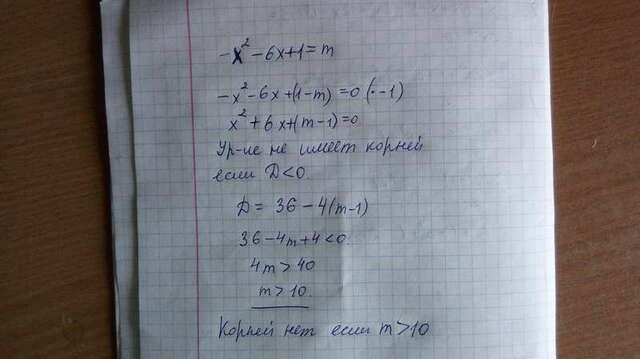 -x² - 6x + 1 = m
-x² - 6x + (1-m) = 0 (· -1)
x² + 6x + (m-1) = 0
Ур-ие не имеет корней
если D<0.
D = 36 - 4(m-1)
36 - 4m + 4 < 0
4m > 40
m > 10.
Корней нет если m > 10